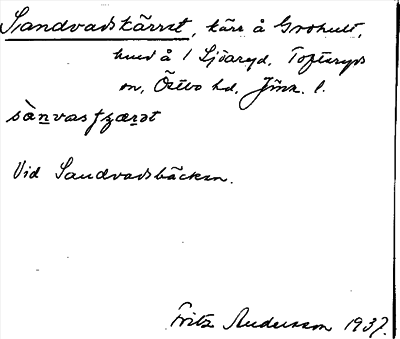 Sandvadskärret, kärr å Grohult,
hmd å 1 Ljöaryd, Tofteryds
sn, Östbo hd, Jönk. l.
sànvasʃʒærət
Vid Sandvadsbäcken.
Fritz Andersson 1937.